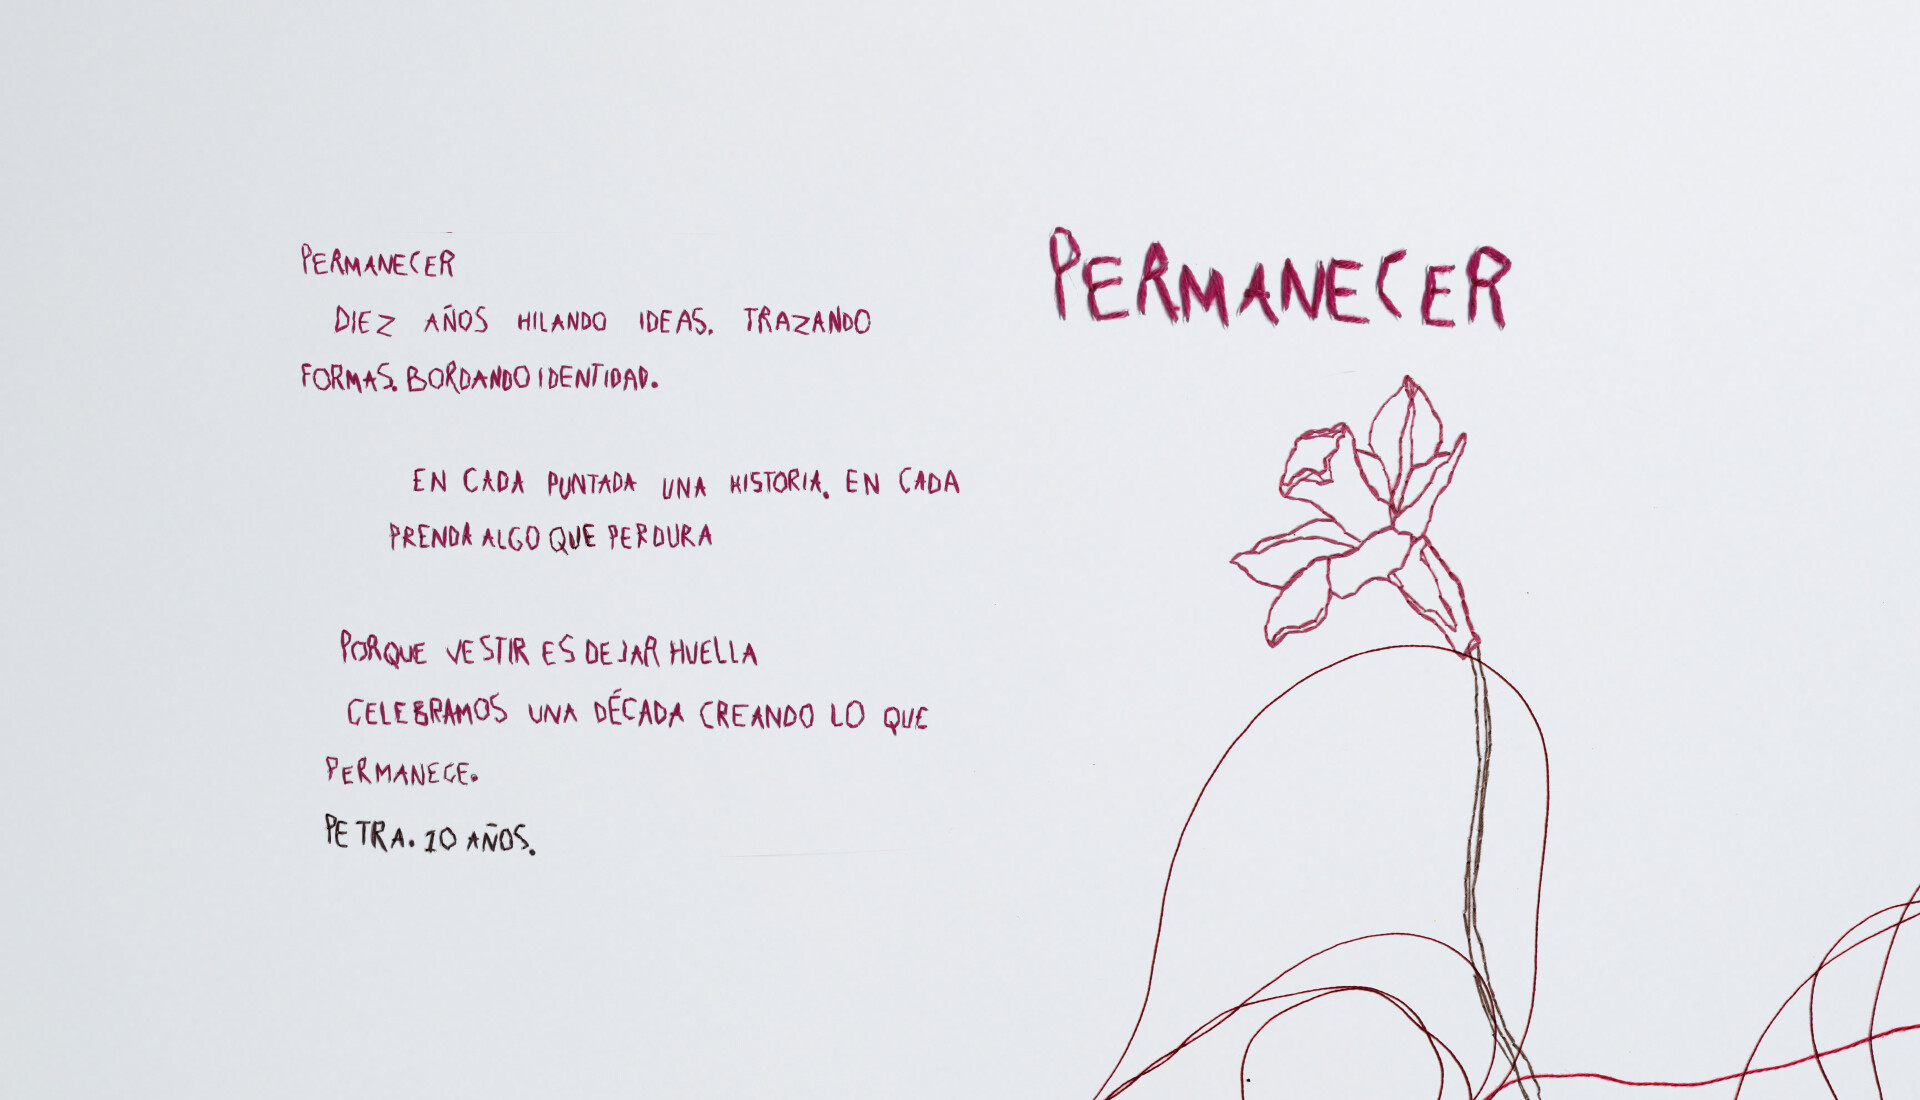 PERMANECER
DIEZ AÑOS HILANDO IDEAS. TRAZANDO
FORMAS. BORDANDO IDENTIDAD.
EN CADA PUNTADA UNA HISTORIA. EN CADA
PRENDA ALGO QUE PERDURA
PORQUE VESTIR ES DEJAR HUELLA
CELEBRAMOS UNA DÉCADA CREANDO LO QUE
PERMANECE.
PETRA. 10 AÑOS.
PERMANECER